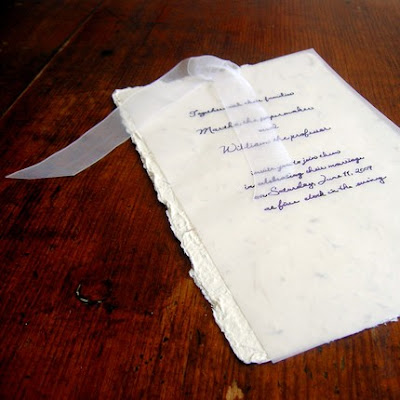 Together with their families
Martha the papermaker
and
William the professor
invite you to join them
in celebrating their marriage
on Saturday, June 19, 2009
at four o'clock in the evening